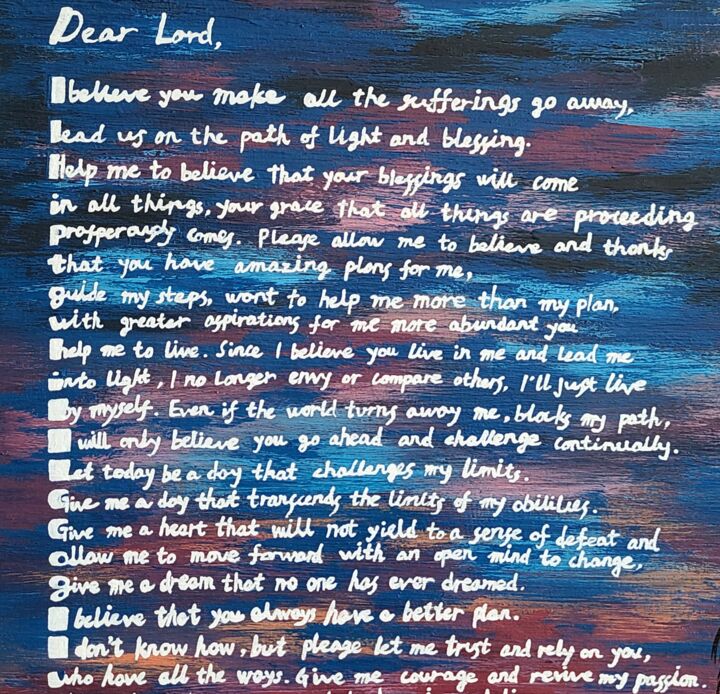 Dear Lord,
I believe you make all the sufferings go away,
lead us on the path of light and blessing.
Help me to believe that your blessings will come
in all things, your grace that all things are proceeding
prosperously comes. Please allow me to believe and thanks
that you have amazing plans for me,
guide my steps, want to help me more than my plan,
with greater aspirations for me more abundant you
help me to live. Since I believe you live in me and lead me
into light, I no longer envy or compare others, I'll just live
by myself. Even if the world turns away me, blocks my path,
I will only believe you go ahead and challenge continually.
Let today be a day that challenges my limits.
Give me a day that transcends the limits of my abilities.
Give me a heart that will not yield to a sense of defeat and
allow me to move forward with an open mind to change,
give me a dream that no one has ever dreamed.
I believe that you always have a better plan.
I don't know how, but please let me trust and rely on you,
who have all the ways. Give me courage and revive my passion.